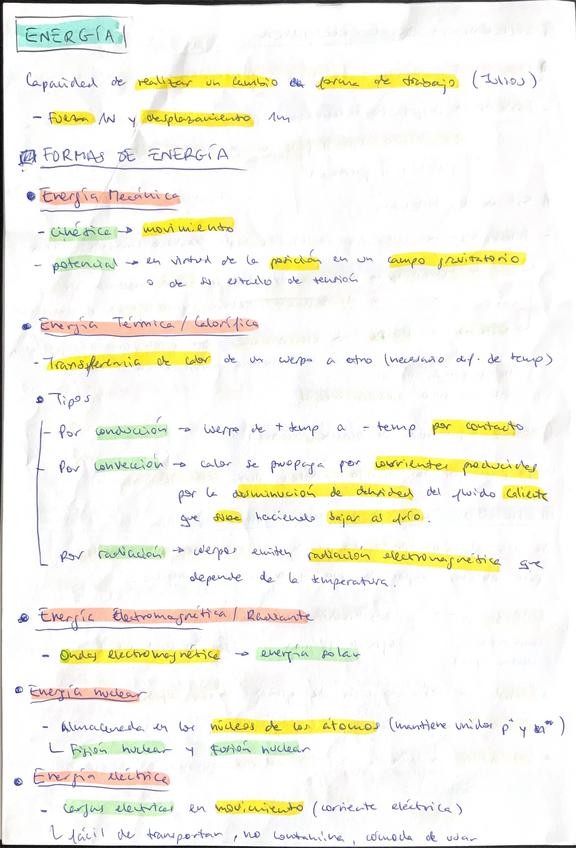 ENERGÍA
Capacidad de realizar un cambio en forma de trabajo (Julios)
- Fuerza 1N y desplazamiento 1m
FORMAS DE ENERGÍA
• Energía Mecánica
- cinética → movimiento
- potencial → en virtud de la posición en un campo gravitatorio
o de su estado de tensión
• Energía Térmica / Calorífica
- Transferencia de calor de un cuerpo a otro (necesario dif. de temp)
• Tipos
- Por conducción → cuerpo de + temp a - temp por contacto
- Por convección → calor se propaga por corrientes producidas
por la disminución de densidad del fluido caliente
que sube haciendo bajar al frío.
Por radiación → cuerpos emiten radiación electromagnética que
depende de la temperatura.
• Energía Eletromagnética / Radiante
- Ondas electromagnética → energía solar
• Energía nuclear
- Almacenada en los núcleos de los átomos (mantiene unidos p⁺ y)
Fisión nuclear y fusión nuclear
• Energía eléctrica
- Cargas electricas en movimiento (corriente eléctrica)
fácil de transportar, no contamina, cómoda de usar